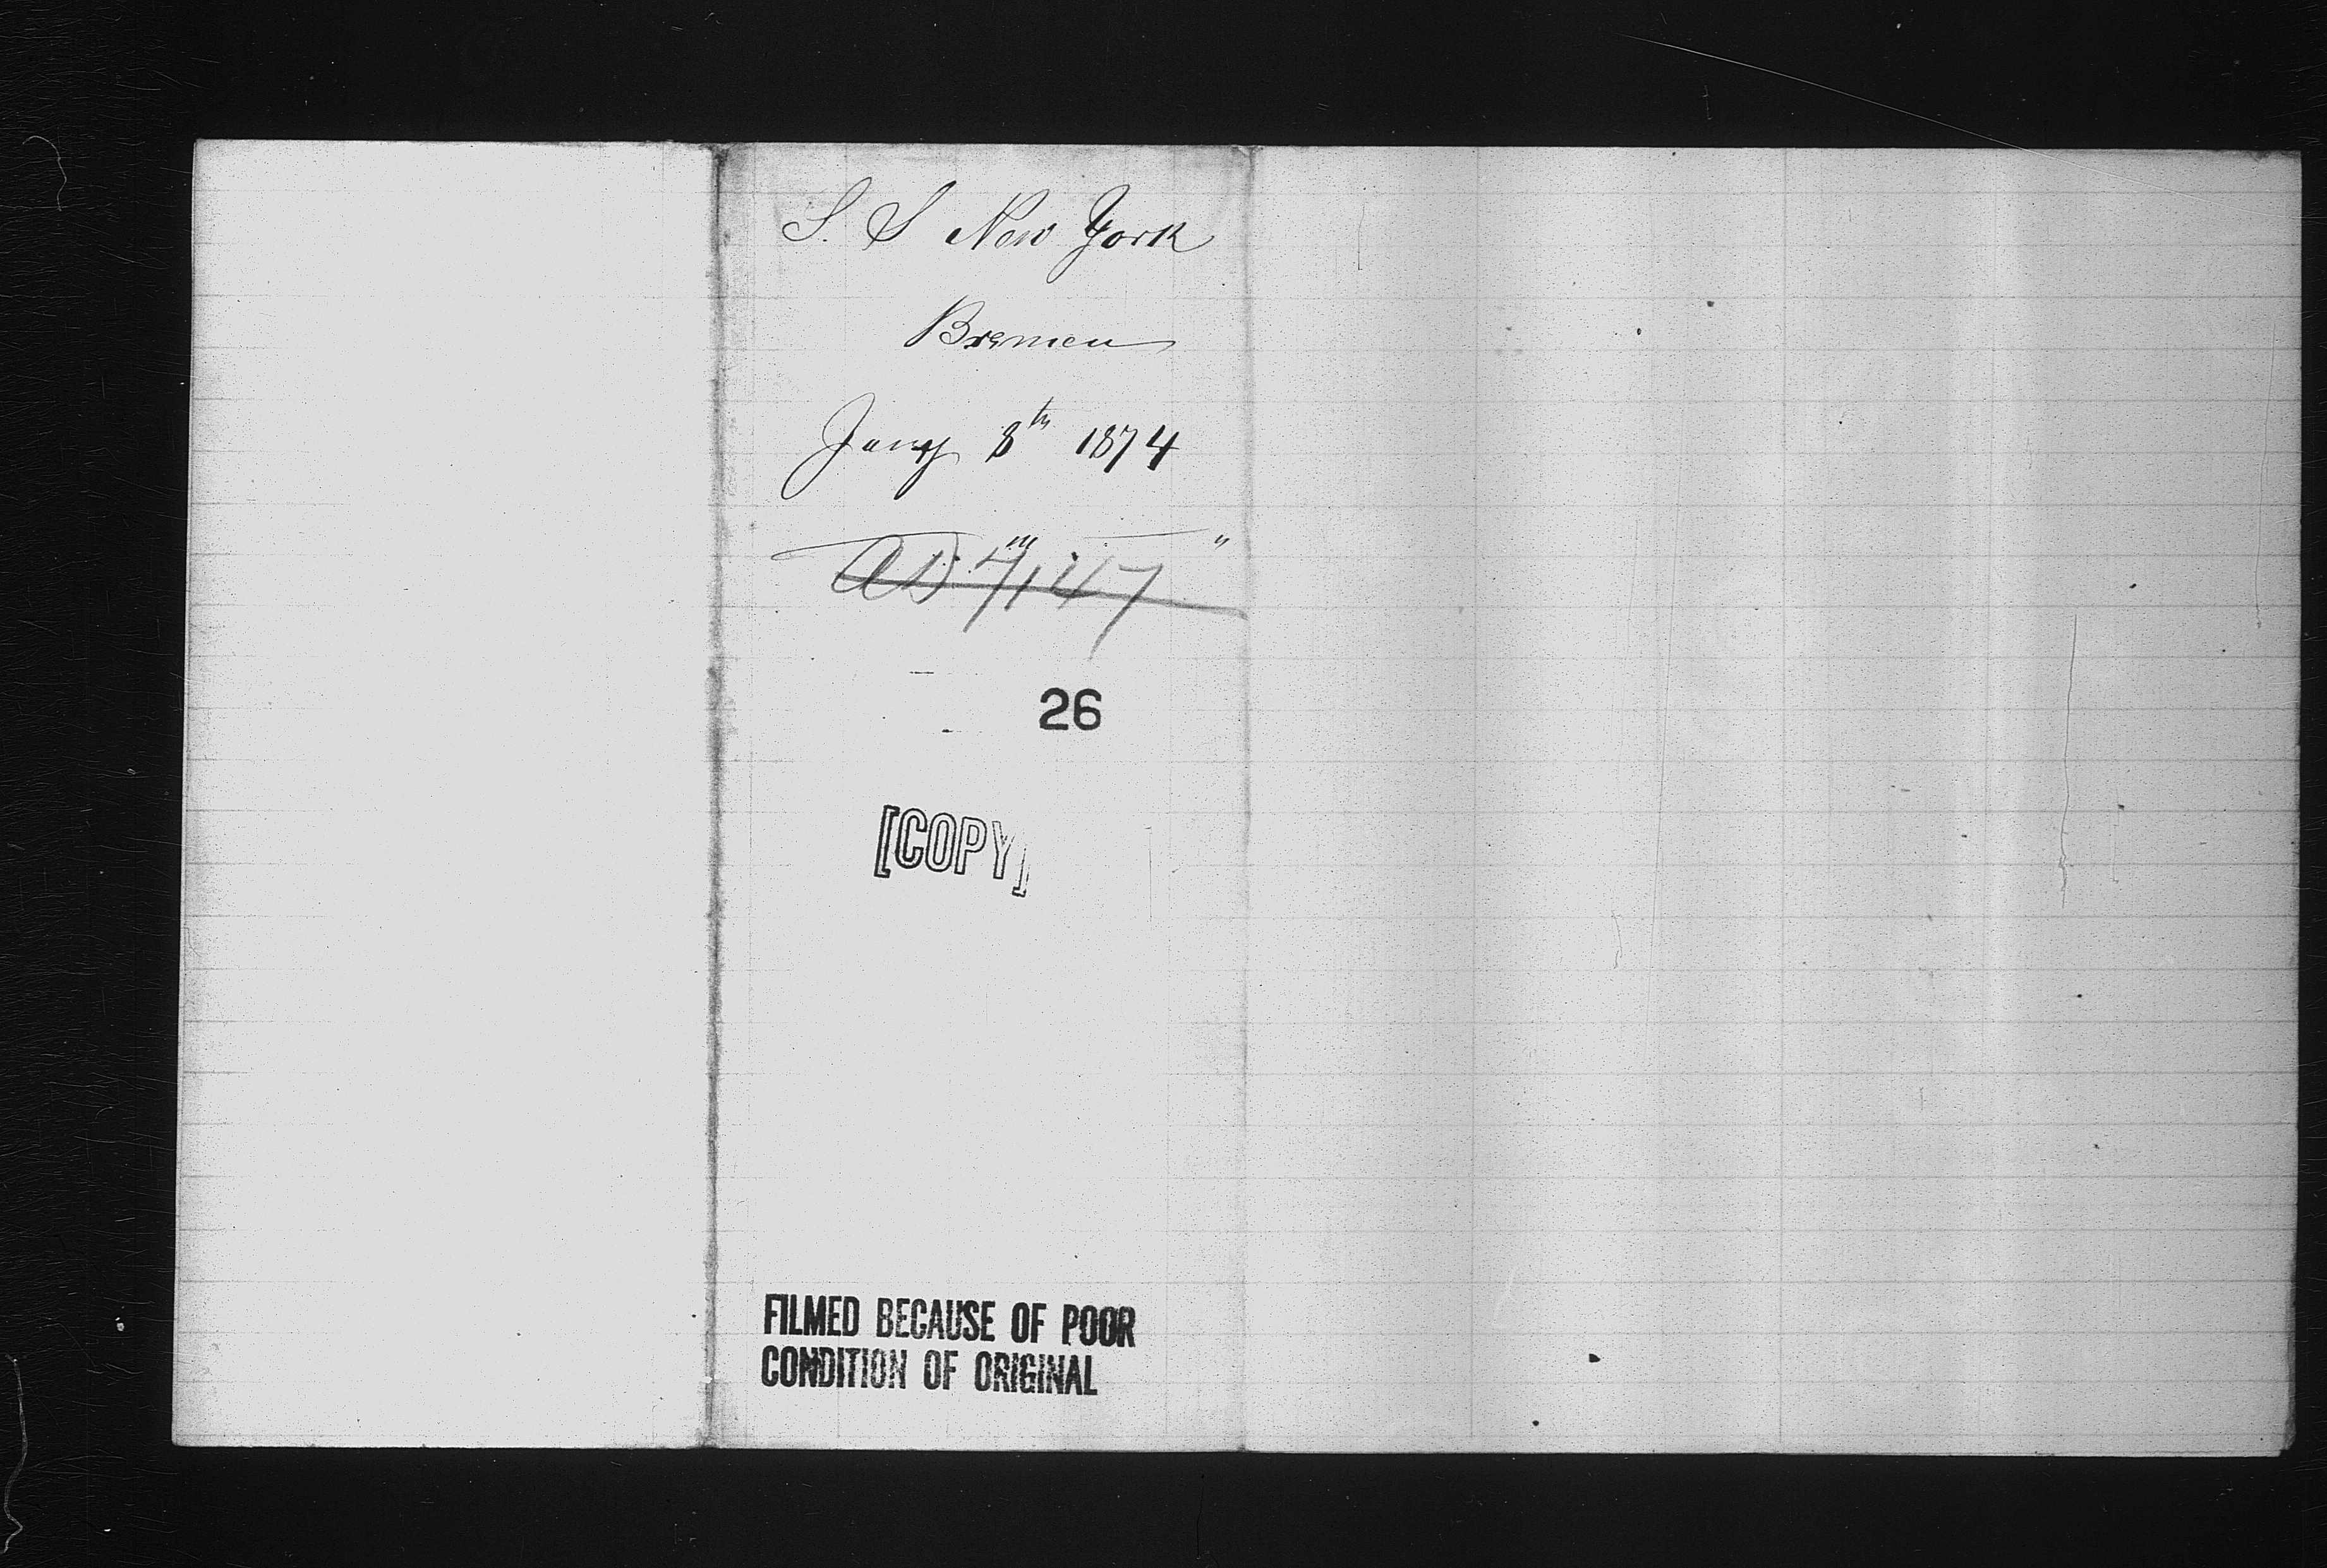 S. S New York
Bremen
Jany 8th 1874
26
[COPY]
FILMED BECAUSE OF POOR
CONDITION OF ORIGINAL